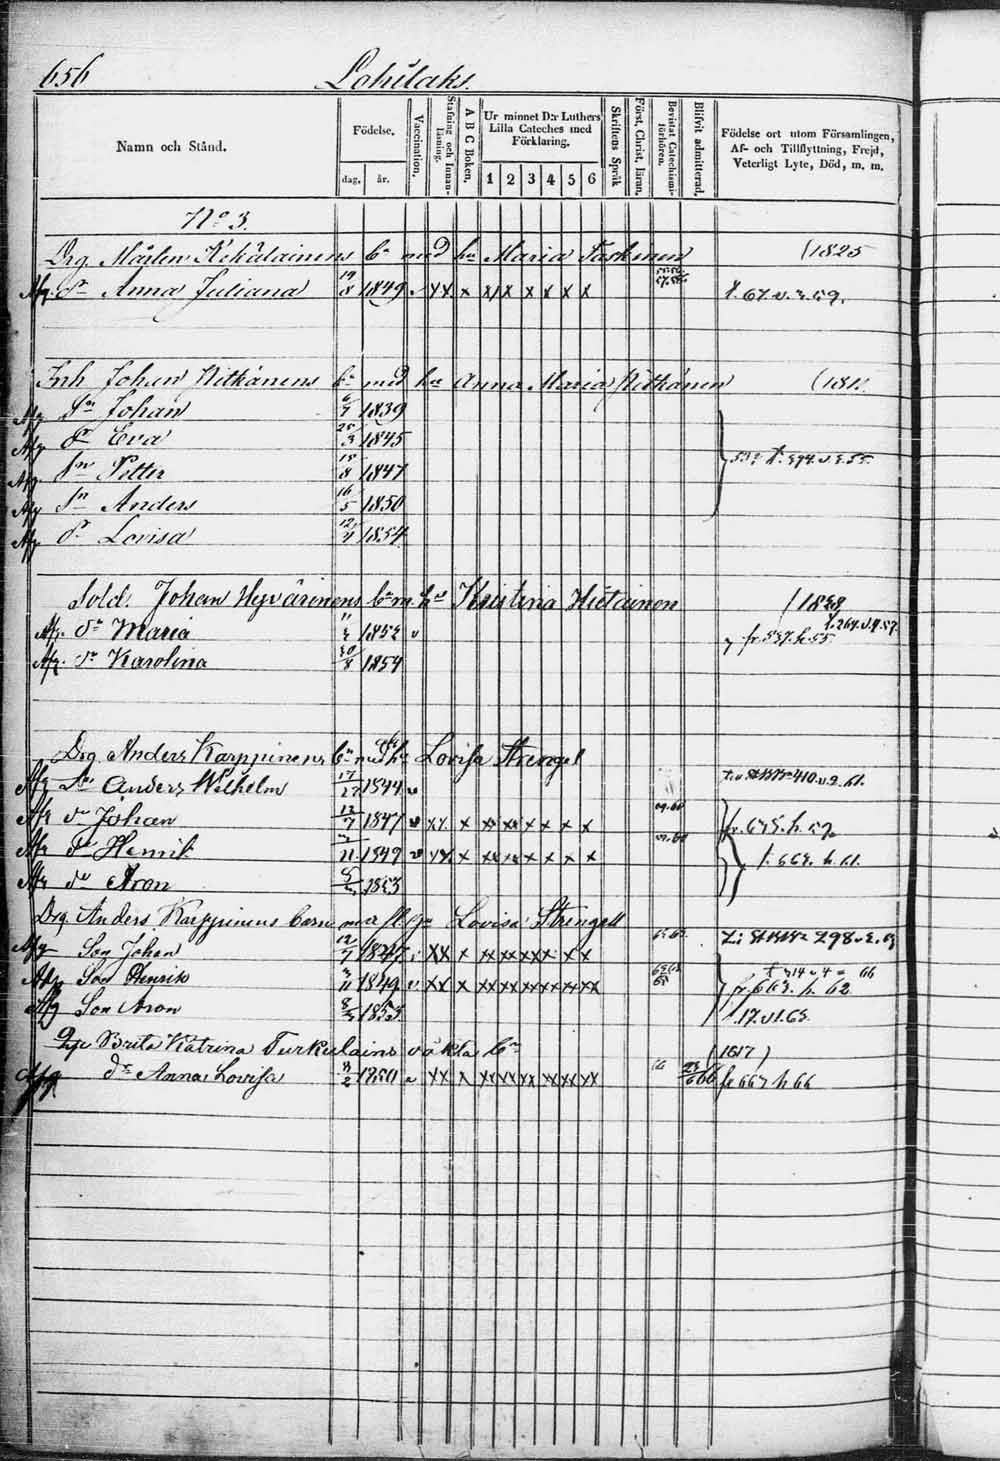 656 Lohilaks.
Namn och Stånd. Födelse. dag. år. Vaccination. Stafning och Innanläsning. A B C Boken. Ur minnet D:r Luthers Lilla Cateches med Förklaring. 1 2 3 4 5 6 Skriftens Språk Först. Christ. läran. Bevistat Catechismiförhören. Blifvit admitterad. Födelse ort utom Församlingen, Af- och Tillflyttning, Frejd, Veterligt Lyte, Död, m. m.
No 3.
Drg. Mårten Kekäläinens bn med hu Maria Taskinen (1825
Afg. dr Anna Juliana 19/8 1849 v x x x x x x x x x t. 67. v. 3. 59.
Inh Johan Pitkänens bn med hu Anna Maria Pitkänen
Afg Sn Johan 6/7 1839
Afg dr Eva 25/3 1845
Afg. Sn Petter 15/8 1847 53: t. 394. v. 3. 55.
Afg Sn Anders 16/5 1850
Afg dr Lovisa 12/4 1854
Sold. Johan Hyvärinens bn m. hu Kristina Hietainen (1828
Afg. dr Maria 1852 v t. 264. v. 4. 57.
fr. 537. h. 55
Afg. dr Karolina 30/8 1854
Drg Anders Karppinens bn med hu Lovisa Strengel
Afg Sn Anders Wilhelm 1844 v 410. v. 2. 61.
Afg dn Johan 12/7 1847 v xx x xx xx x x x x 60 fr. 675. h. 59
Afg dn Henrik 3/11 1849 v xx x xx xx x x x x 60 t. 663. h. 61.
Afg dn Aron 1853
Drg. Anders Karppinens barn med fl. gn Lovisa Strengell
Afg Son Johan 12/7 1847 v xx x xx xx xx x x x 298 v. 2. 63
Afg Son Henrik 3/11 1849 v xx x xx xx xx xx xx t 314 v 4 66
fr. 663. h. 62
Afg Son Aron 1853 t. 17. v 1. 65.
Brita Katrina Turkulainens oäkta bn (1617)
Afg dr Anna Lovisa 3/2 1850 v xx x xx xx xx xx xx 66 fr 667 h 66